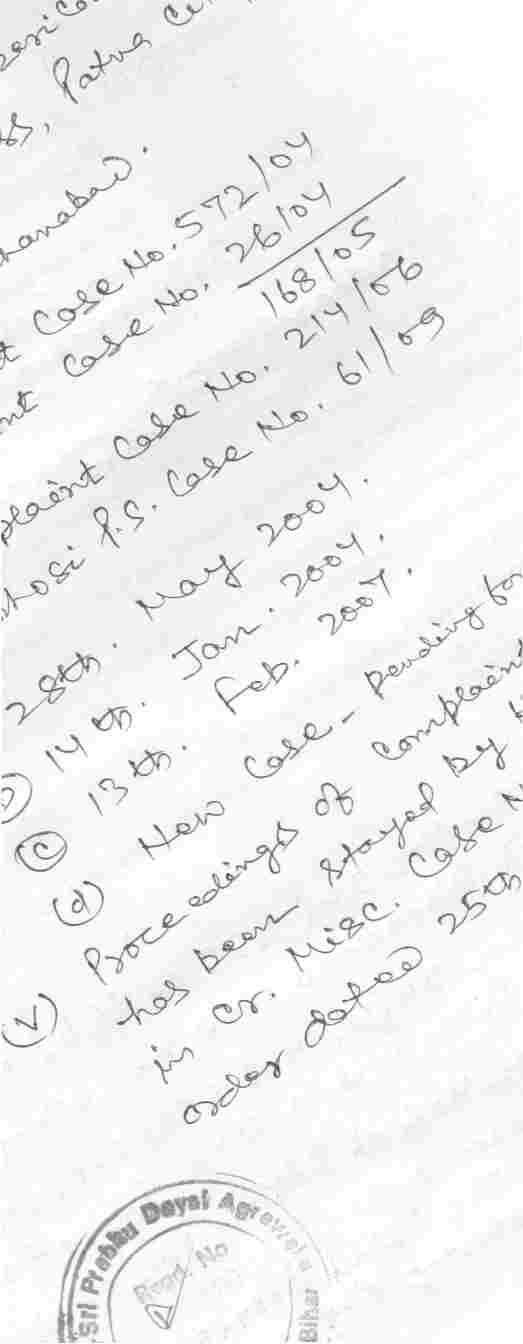 Patna
Case No. 572/04
Case No. 26/04
168/05
Case No. 214/06
P.S. Case No. 61/09
28th. May 2004.
14th. Jan. 2004.
(c) 13th. Feb. 2007.
(d) New Case - pending for
(v) Proceedings of Complain
has been stayed by
in Cr. Misc. Case N
order dated 25th
Sri Prabhu Dayal Agrawal
Regd. No
Bihar